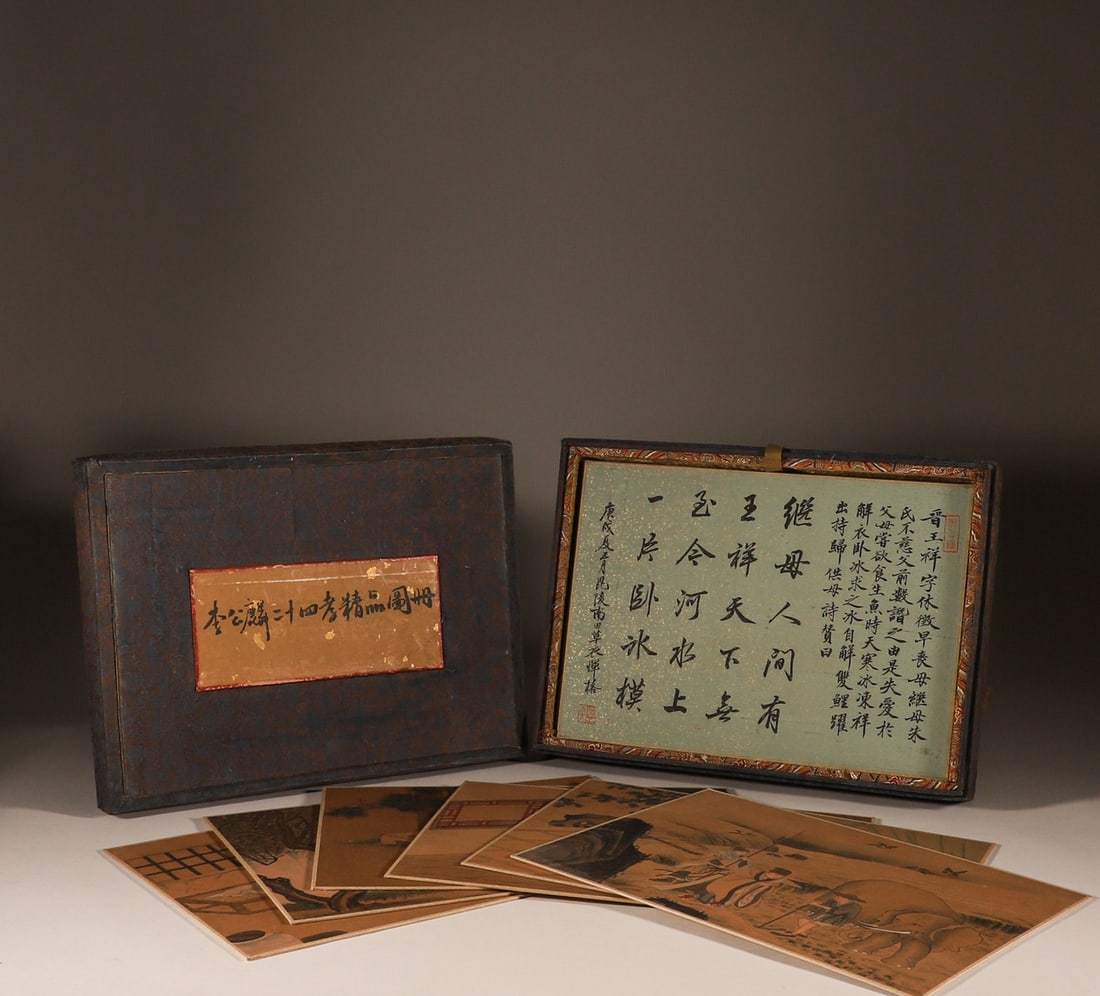 李公麟二十四孝精品圖冊
晋王祥字休徵早喪母繼母朱
氏不慈父前數譖之由是失愛於
父母嘗欲食生魚時天寒冰凍祥
解衣卧冰求之冰自解雙鯉躍
出持歸供母詩贊曰
继母人间有
王祥天下無
至今河水上
一片卧氷模
庚戌夏五月毘陵南田草衣惲格